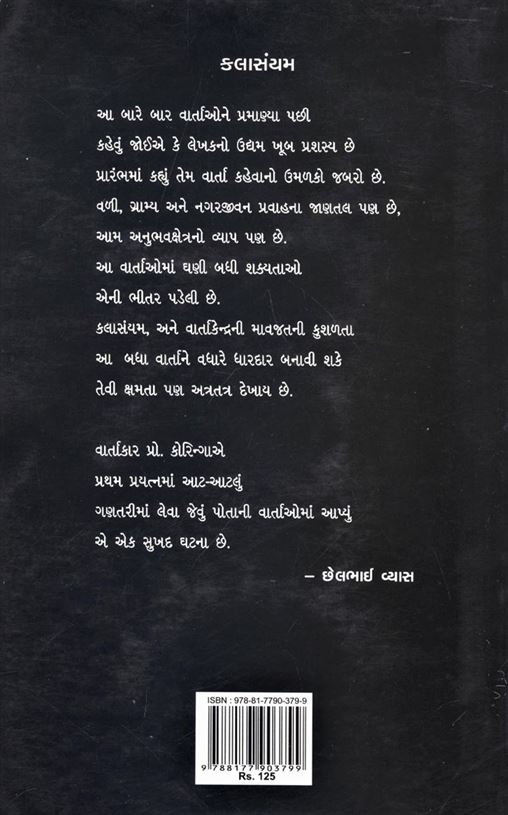 કલાસંયમ
આ બારે બાર વાર્તાઓને પ્રમાણ્યા પછી
કહેવું જોઈએ કે લેખકનો ઉદ્યમ ખૂબ પ્રશસ્ય છે
પ્રારંભમાં કહ્યું તેમ વાર્તા કહેવાનો ઉમળકો જબરો છે.
વળી, ગ્રામ્ય અને નગરજીવન પ્રવાહના જાણતલ પણ છે,
આમ અનુભવક્ષેત્રનો વ્યાપ પણ છે.
આ વાર્તાઓમાં ઘણી બધી શક્યતાઓ
એની ભીતર પડેલી છે.
કલાસંયમ, અને વાર્તાકેન્દ્રની માવજતની કુશળતા
આ બધા વાર્તાને વધારે ધારદાર બનાવી શકે
તેવી ક્ષમતા પણ અત્રતત્ર દેખાય છે.
વાર્તાકાર પ્રો. કોરિન્ગાએ
પ્રથમ પ્રયત્નમાં આટ-આટલું
ગણતરીમાં લેવા જેવું પોતાની વાર્તાઓમાં આપ્યું
એ એક સુખદ ઘટના છે.
– છેલભાઈ વ્યાસ
ISBN : 978-81-7790-379-9
9 788177 903799
Rs. 125